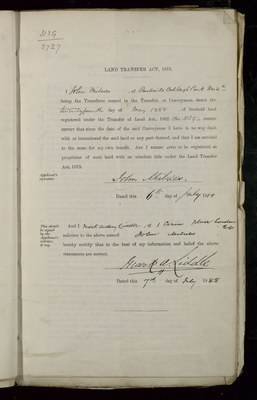 LAND TRANSFER ACT, 1875.
I John Milnes of
being the Transferee named in the Transfer, or Conveyance, dated the
day of May 1888 of freehold land
registered under the Transfer of Land Act, 1862 (No. ), memorandum
that since the date of the said Conveyance I have in no way dealt
with or incumbered the said land or any part thereof, and that I am entitled
to the same for my own benefit. And I consent to be registered as
proprietor of such land with an absolute title under the Land Transfer
Act, 1875.
Applicant's
signature.
John Milnes.
Dated this 6th day of July 1888
This should
be signed
by the
Applicant's
solicitor,
if any.
And I of 1
solicitor to the above named John Milnes
hereby certify that to the best of my information and belief the above
statements are correct.
Liddle
Dated this 7th day of July 1888